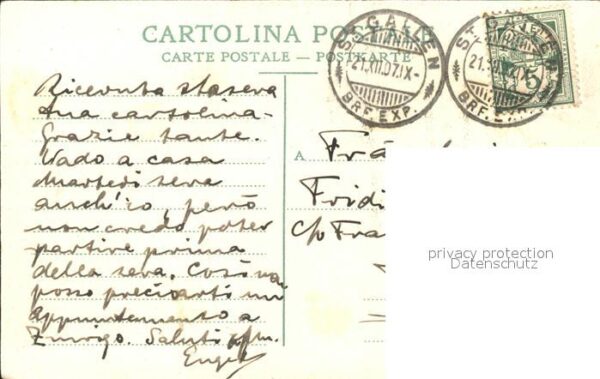 CARTOLINA POSTALE
CARTE POSTALE — POSTKARTE
ST. GALLEN
21.XII.07.IX-
BRF. EXP.
ST. GALLEN
21.XII.07
BRF. EXP.
5
Ricevuta stasera
tua cartolina -
Grazie tante.
Vado a casa
Martedi sera
anch'io, però
non credo poter
partire prima
della sera. Così
posso
appuntamento a
Zurigo. Saluti
A
Fridi
c/o Fra
privacy protection
Datenschutz